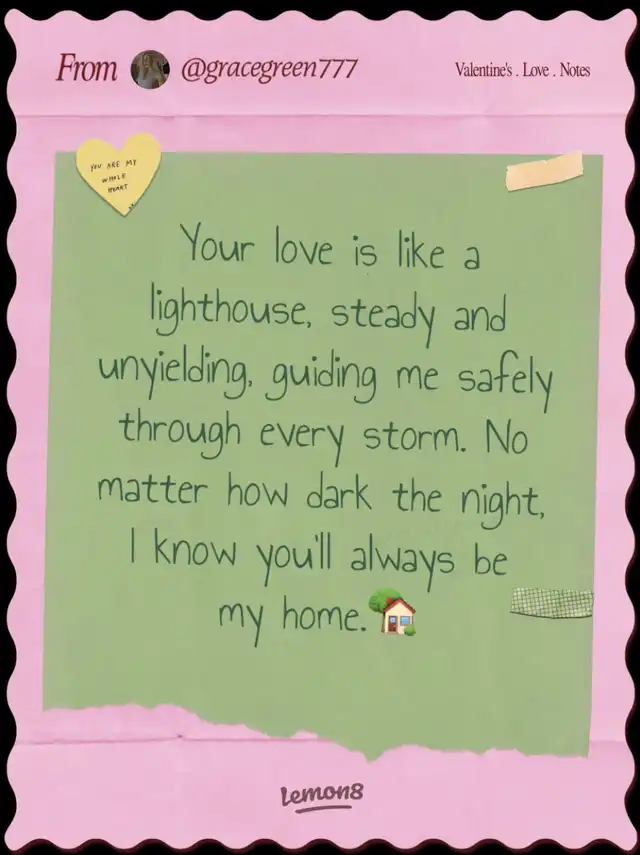 From @gracegreen777
Valentine's . Love . Notes
YOU ARE MY
WHOLE
HEART
Your love is like a
lighthouse, steady and
unyielding, guiding me safely
through every storm. No
matter how dark the night,
I know you'll always be
my home.🏡
Lemon8